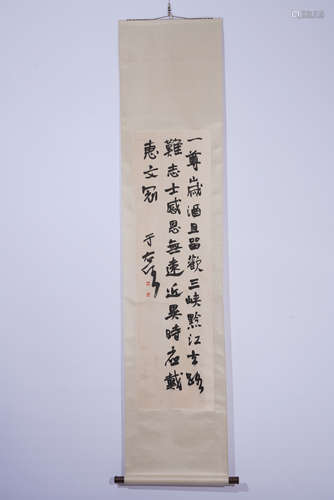 一尊歲酒且留歡三峽黔江去路
難志士感恩無遠近異時應戴
惠文冠
于右任